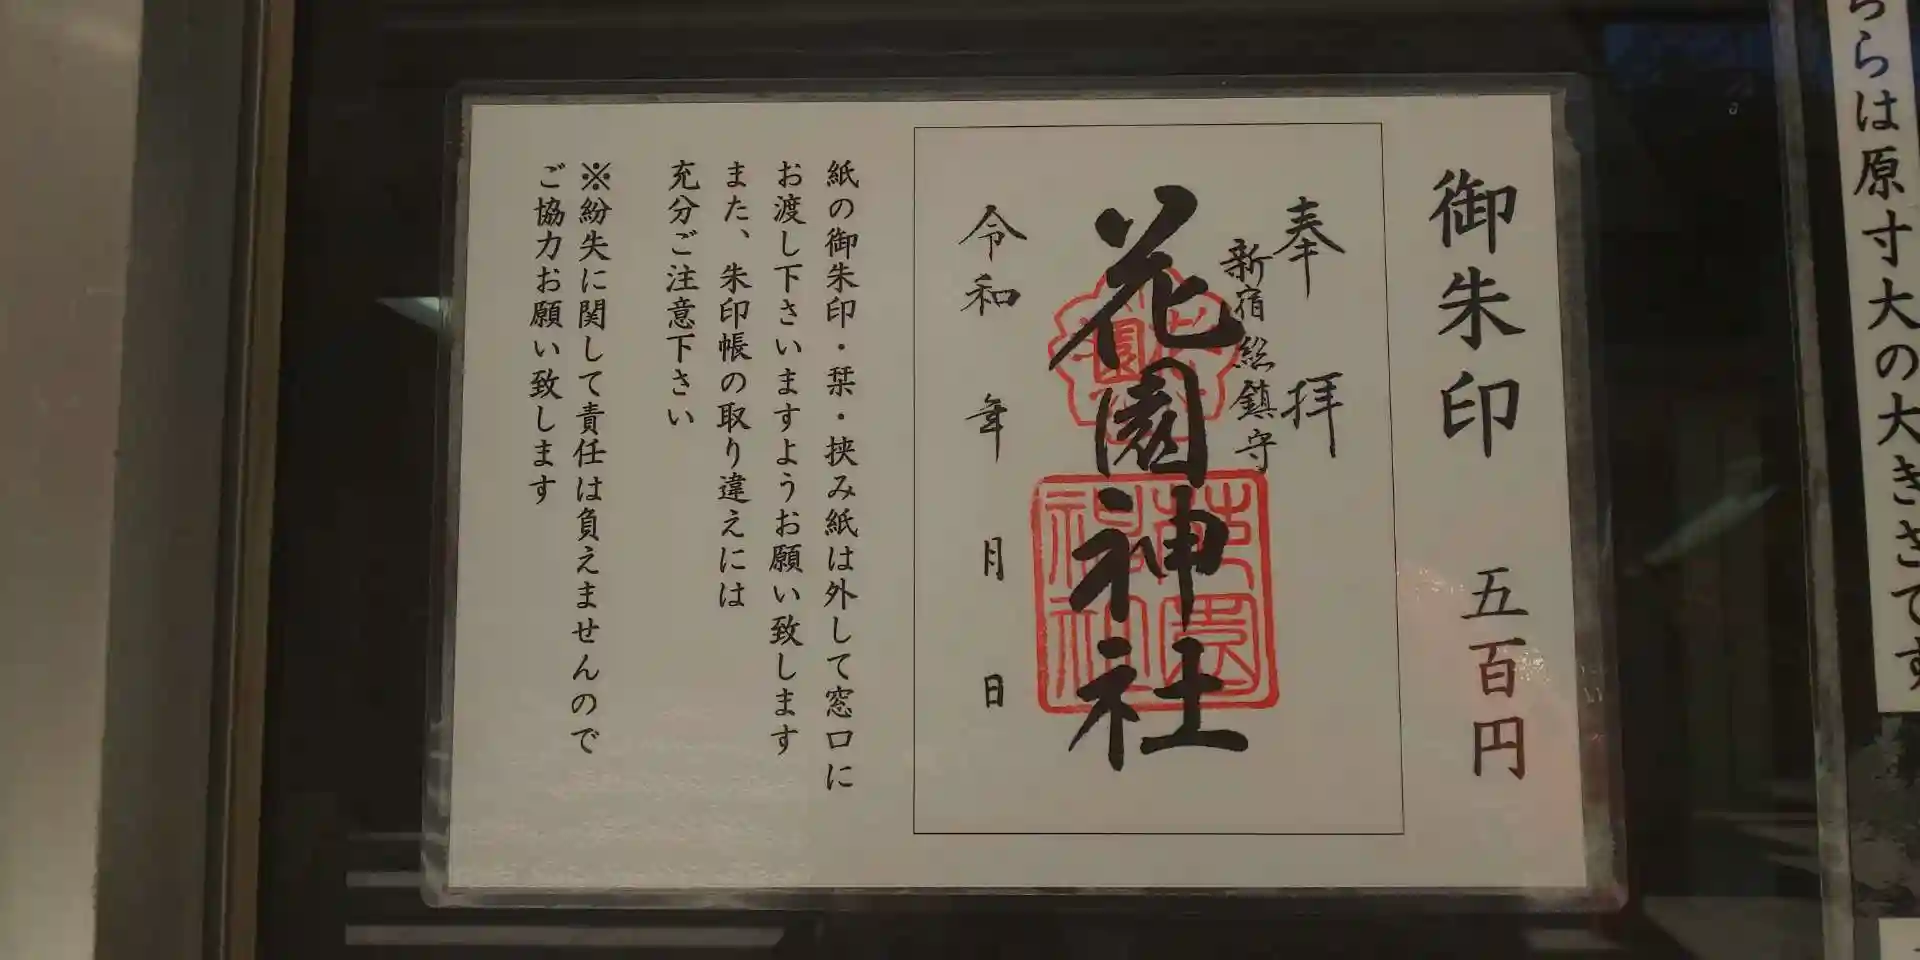 御朱印 五百円
奉拝
新宿総鎮守
花園神社
令和 年 月 日
紙の御朱印・栞・挟み紙は外して窓口に
お渡し下さいますようお願い致します
また、朱印帳の取り違えには
充分ご注意下さい
※紛失に関して責任は負えませんので
ご協力お願い致します
ちらは原寸大の大きさです